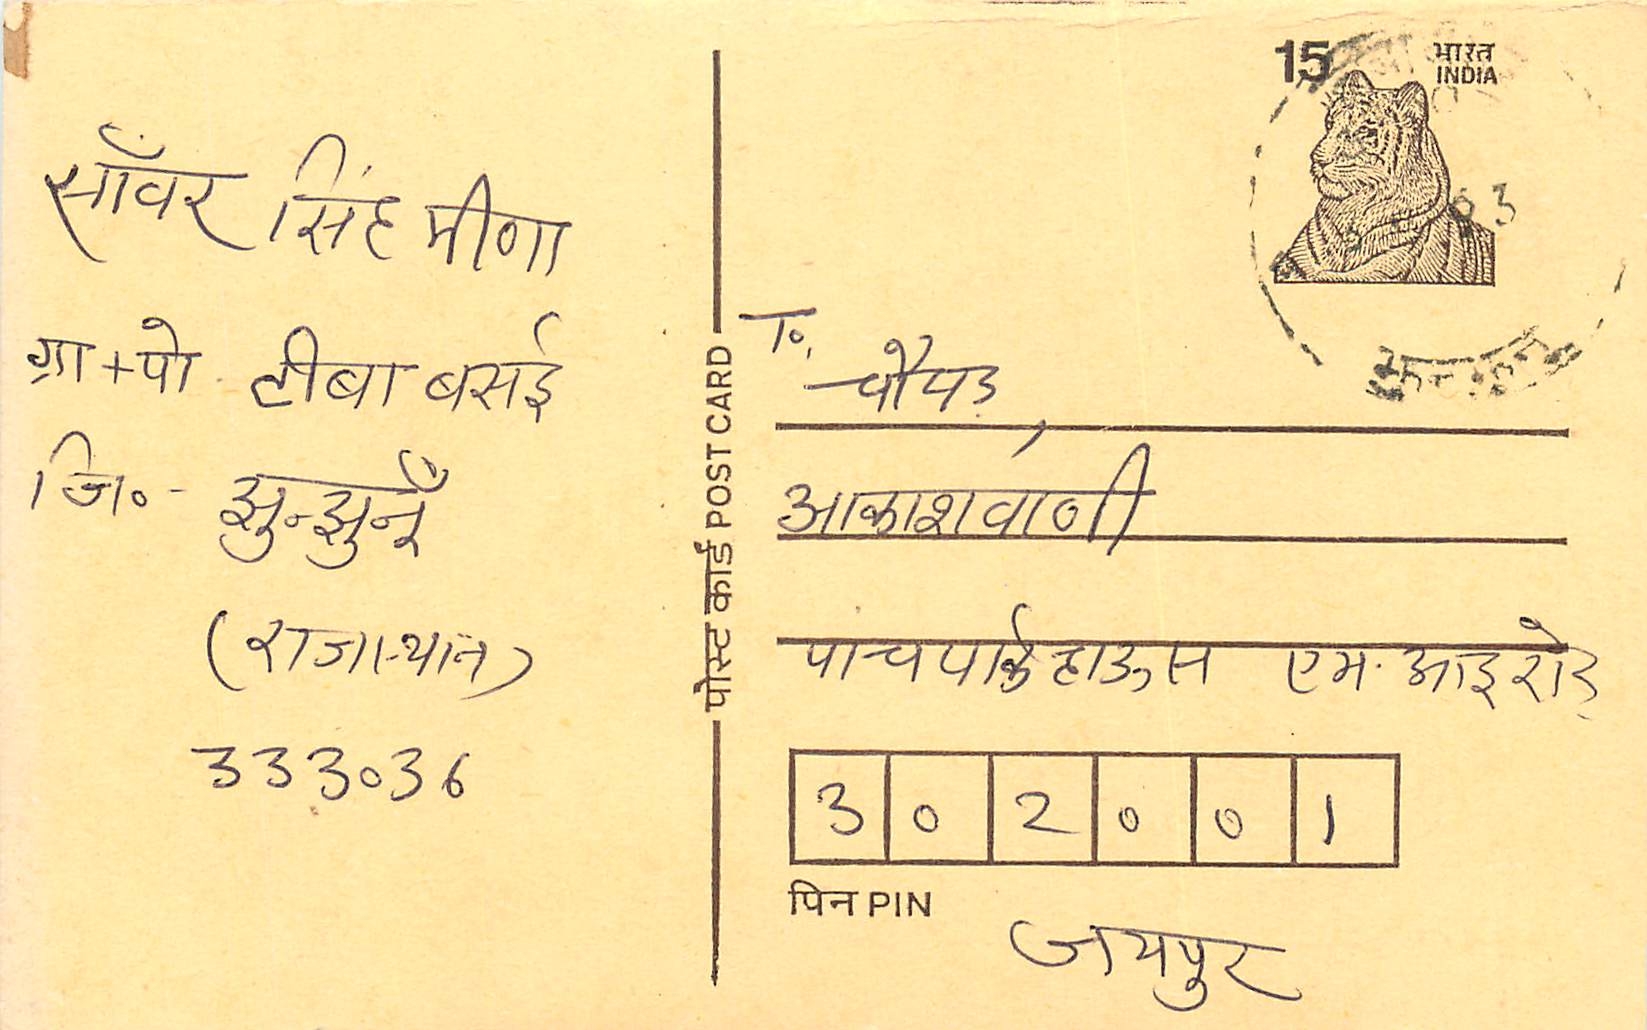 साँवर सिंह मीणा
ग्रा + पो टीबा बसई
जि॰ - झुन्झुनूँ
(राजस्थान)
333036
पोस्ट कार्ड POST CARD
15 भारत
INDIA
To,
चौपड़,
आकाशवाणी
पाच पार्क हाऊस एम. आइ रोड़
3 0 2 0 0 1
पिन PIN
जयपुर